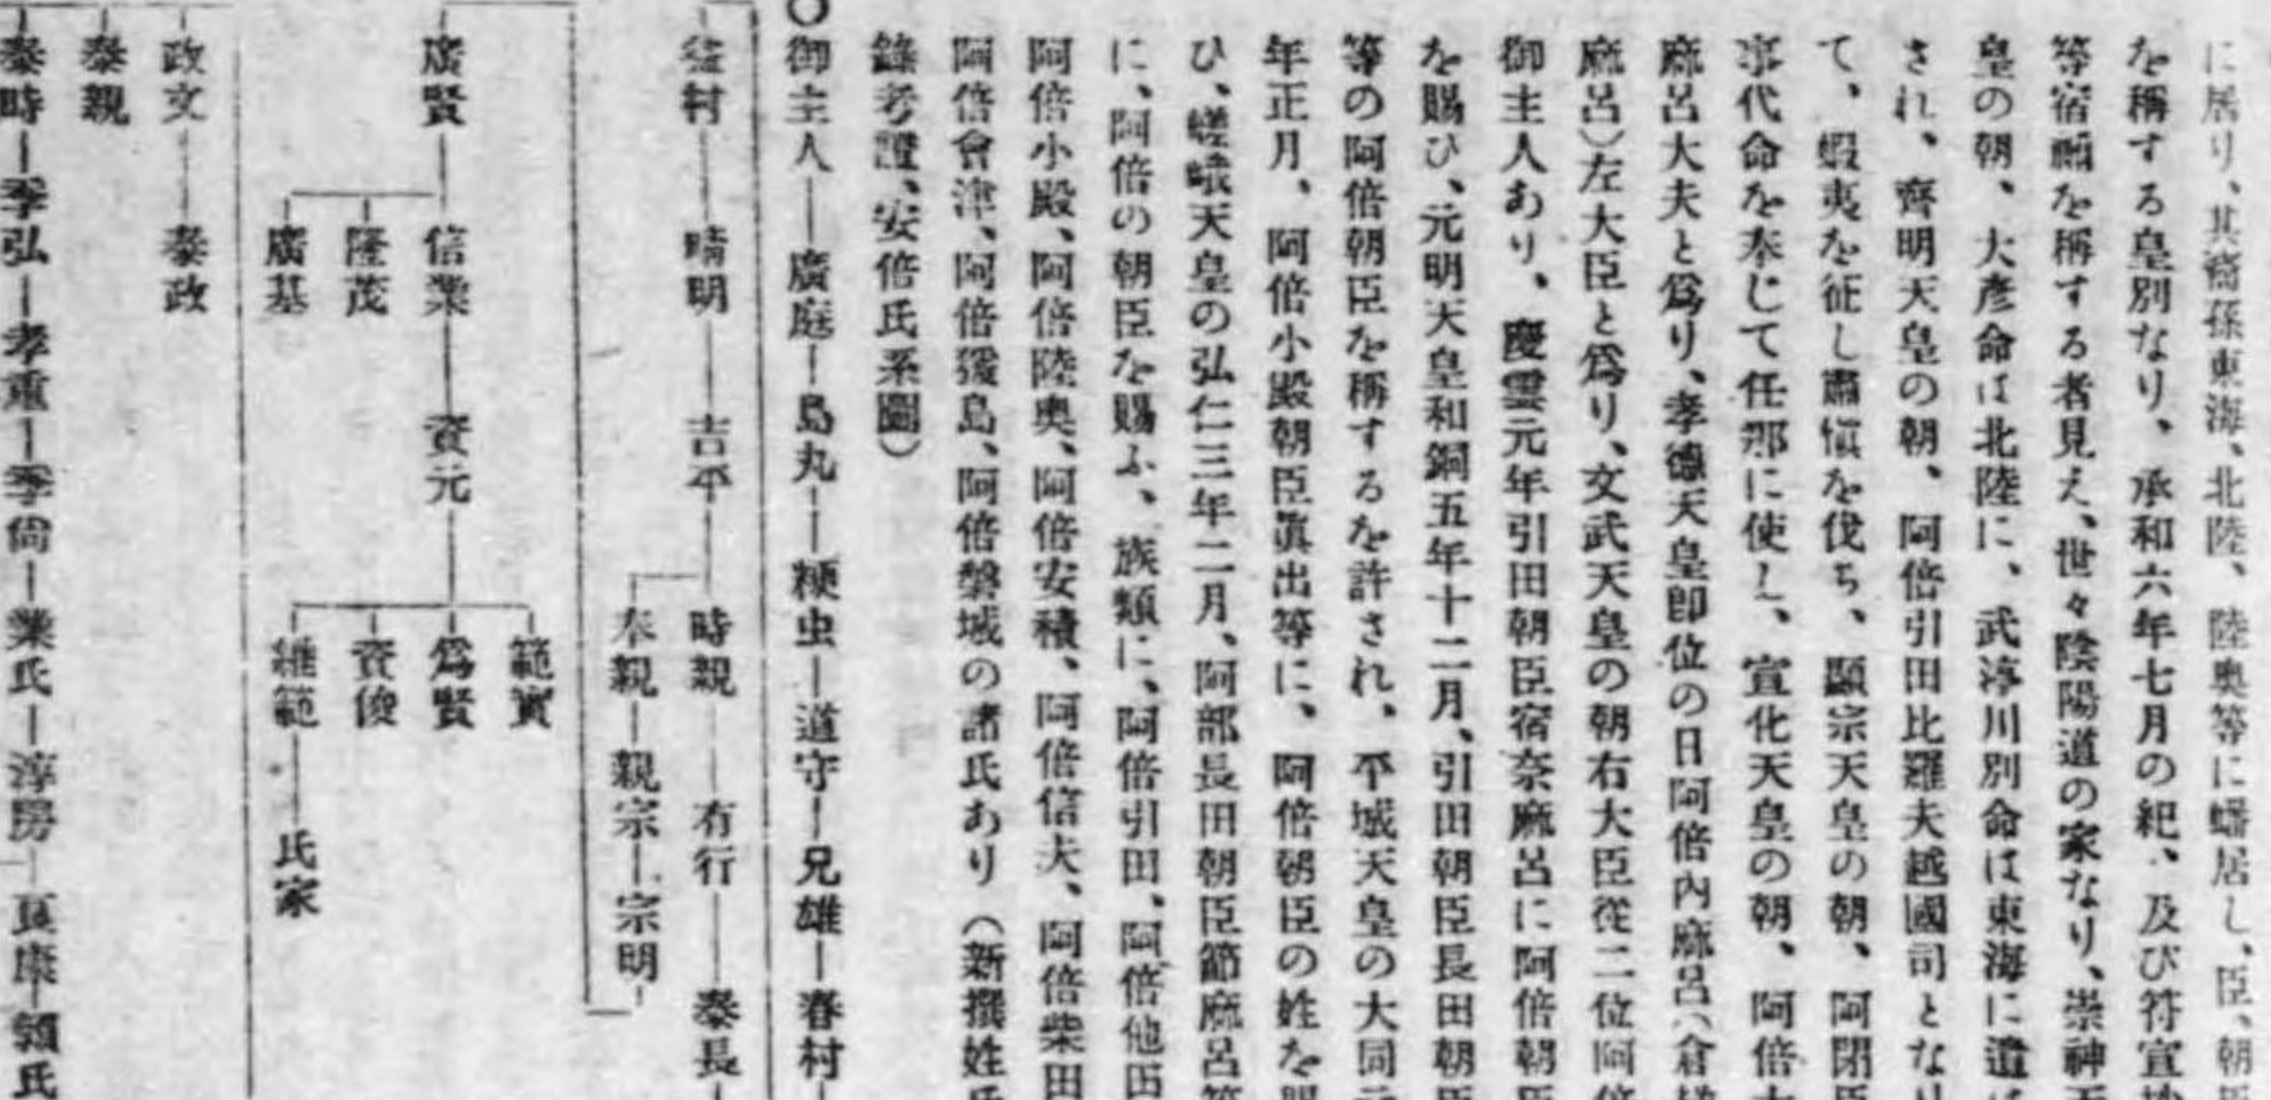 に居り、其裔孫東海、北陸、陸奥等に蟠居し、臣、朝臣
を稱する皇別なり、承和六年七月の紀、及び符宣抄
等宿禰を稱する者見え、世々陰陽道の家なり、崇神天
皇の朝、大彦命は北陸に、武渟川別命は東海に遣は
され、齊明天皇の朝、阿倍引田比羅夫越國司となり
て、蝦夷を征し肅愼を伐ち、顯宗天皇の朝、阿閉臣
事代命を奉じて任那に使し、宣化天皇の朝、阿倍大
麻呂大夫と爲り、孝德天皇卽位の日阿倍內麻呂(倉梯
麻呂)左大臣と爲り、文武天皇の朝右大臣從二位阿倍
御主人あり、慶雲元年引田朝臣宿奈麻呂に阿倍朝臣
を賜ひ、元明天皇和銅五年十二月、引田朝臣長田朝臣
等の阿倍朝臣を稱するを許され、平城天皇の大同元
年正月、阿倍小殿朝臣眞出等に、阿倍朝臣の姓を賜
ひ、嵯峨天皇の弘仁三年二月、阿部長田朝臣節麻呂等
に、阿倍の朝臣を賜ふ、族類に、阿倍引田、阿倍他田
阿倍小殿、阿倍陸奥、阿倍安積、阿倍信夫、阿倍柴田
阿倍會津、阿倍猨島、阿倍磐城の諸氏あり(新撰姓氏
錄考證、安倍氏系圖)
○御主人―廣庭―島丸―粳虫―道守―兄雄―春村―
益村―晴明―吉平―時親―有行―泰長―
奉親―親宗―宗明
廣賢―信業―資元―範實
爲賢
資俊
維範―氏家
隆茂
廣基
政文―泰政
泰親
泰時―季弘―孝重―季尙―業氏―淳房―良康―頼氏